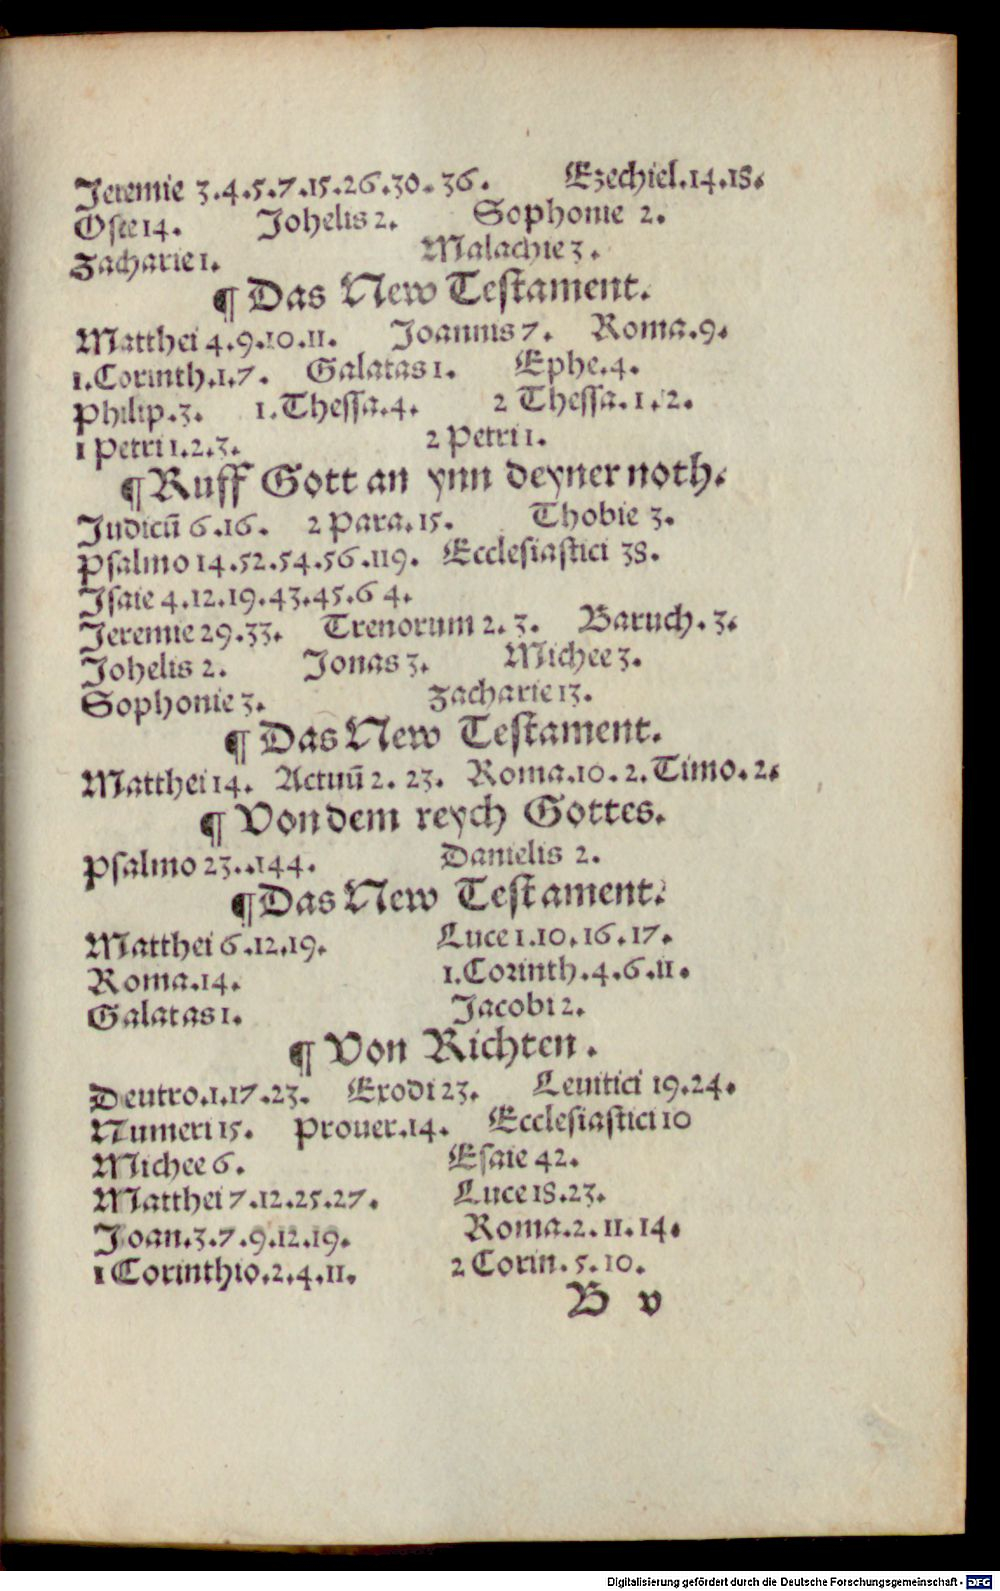 Jeremie 3.4.5.7.15.26.30.36. Ezechiel.14.18.
Osee 14. Johelis 2. Sophonie 2.
Zacharie 1. Malachie 3.
¶ Das New Testament.
Matthei 4.9.10.11. Joannis 7. Roma.9.
1.Corinth.1.7. Galatas 1. Ephe.4.
Philip.3. 1.Thessa.4. 2 Thessa.1.2.
1 Petri 1.2.3. 2 Petri 1.
¶ Ruff Gott an ynn deyner noth.
Judicū 6.16. 2 Para.15. Thobie 3.
Psalmo 14.52.54.56.119. Ecclesiastici 38.
Isaie 4.12.19.43.45.64.
Jeremie 29.33. Trenorum 2.3. Baruch.3.
Johelis 2. Jonas 3. Michee 3.
Sophonie 3. Zacharie 13.
¶ Das New Testament.
Matthei 14. Actuū 2.23. Roma.10. 2.Timo.2.
¶ Von dem reych Gottes.
Psalmo 23..144. Danielis 2.
¶ Das New Testament.
Matthei 6.12.19. Luce 1.10.16.17.
Roma.14. 1.Corinth.4.6.11.
Galatas 1. Jacobi 2.
¶ Von Richten.
Deutro.1.17.23. Exodi 23. Leuitici 19.24.
Numeri 15. Prouer.14. Ecclesiastici 10
Michee 6. Esaie 42.
Matthei 7.12.25.27. Luce 18.23.
Joan.3.7.9.12.19. Roma.2.11.14.
1 Corinthio.2.4.11. 2 Corin.5.10.
B v
Digitalisierung gefördert durch die Deutsche Forschungsgemeinschaft - DFG